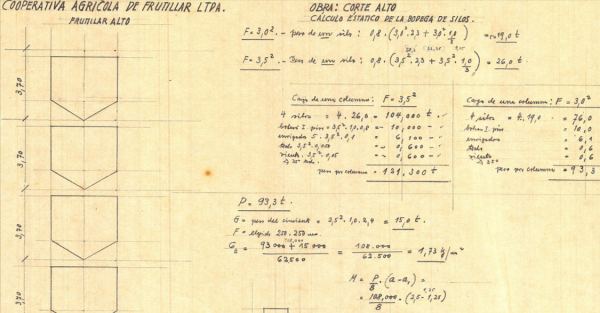 COOPERATIVA AGRÍCOLA DE FRUTILLAR LTDA.
FRUTILLAR ALTO
OBRA: CORTE ALTO
CÁLCULO ESTÁTICO DE LA BODEGA DE SILOS.
F = 3,0² - peso de um silo: 0,8 · (3,0² · 2,3 + 3,0² · 1,0/3) = 19,0 t
F = 3,5² - Peso de um silo: 0,8 · (3,5² · 2,3 + 3,5² · 1,0/3) = 26,0 t.
Carga de una columna: F = 3,5²
4 silos = 4 . 26,0 = 104,000 t.
= 10,000 -
5 . 3,5² . 0,1 = 6,100 -
techo 3,5² . 0,050 = 0,600 -
viento . 3,5² . 0,05 = 0,600 -
peso por columna = 121,300 t
Carga de una columna: F = 3,0²
4 silos = 4 . 19,0 = 76,0
= 10,0
= 6,1
techo = 0,6
viento = 0,6
peso por columna = 93,3
3,70
3,70
3,70
3,70
P = 93,3 t.
G = peso del cimiento = 2,5² . 1,0 . 2,4 = 15,0 t.
F = 250 . 250 cm.
93000 + 15000 / 62500 = 108.000 / 62.500 = 1,73 kg/cm²
M = P/8 · (a - a₁) =
= 108,000/8 · (2,5 - 1,25)